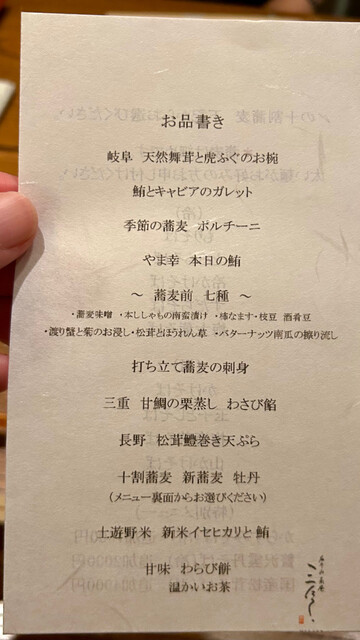 お品書き
岐阜 天然舞茸と虎ふぐのお椀
鮪とキャビアのガレット
季節の蕎麦 ポルチーニ
やま幸 本日の鮪
～ 蕎麦前 七種 ～
・蕎麦味噌 ・本ししゃもの南蛮漬け ・柿なます・枝豆 酒肴豆
・渡り蟹と菊のお浸し・松茸とほうれん草 ・バターナッツ南瓜の擦り流し
打ち立て蕎麦の刺身
三重 甘鯛の栗蒸し わさび餡
長野 松茸鱧巻き天ぷら
十割蕎麦 新蕎麦 牡丹
(メニュー裏面からお選びください)
土遊野米 新米イセヒカリと 鮪
甘味 わらび餅
温かいお茶